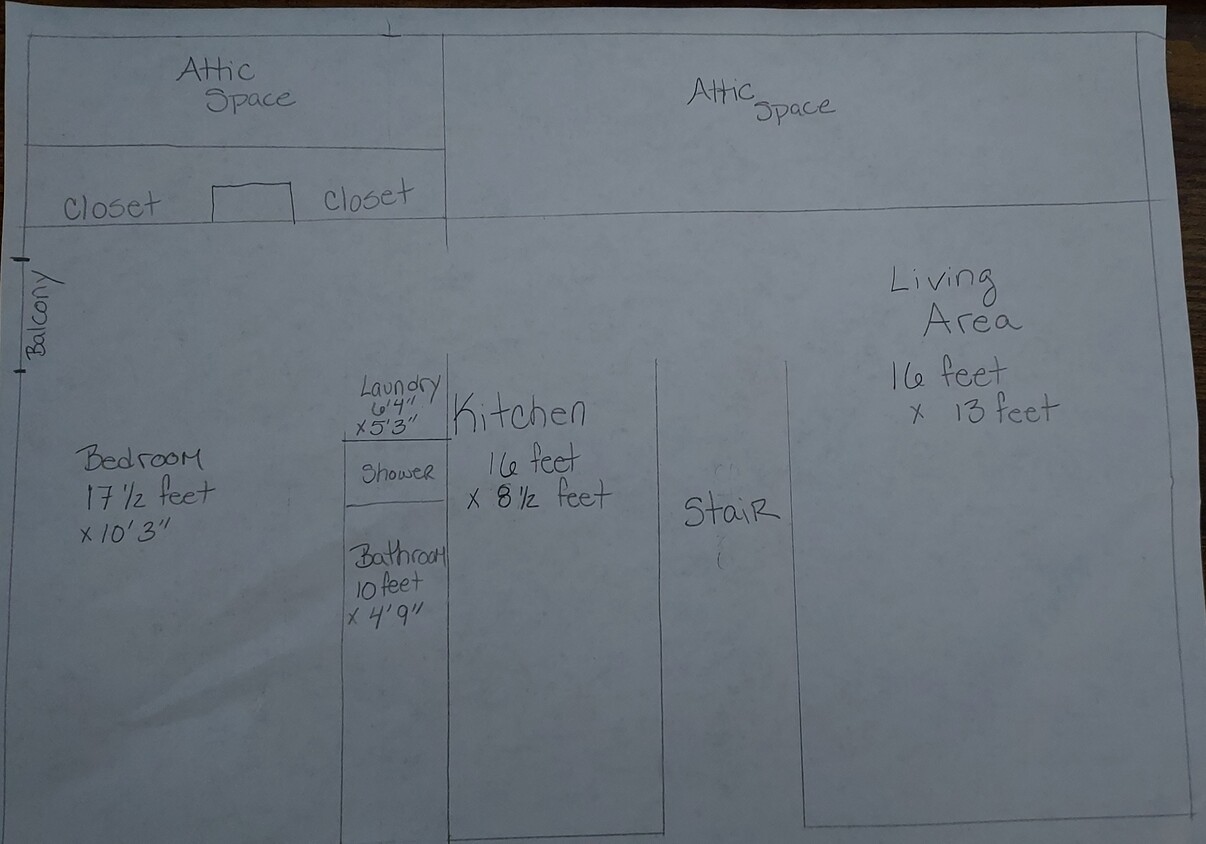 Attic
Space
Attic
Space
Closet
Closet
Balcony
Living
Area
16 feet
x 13 feet
Laundry
6'4"
x 5'3"
Kitchen
16 feet
x 8 1/2 feet
Bedroom
17 1/2 feet
x 10' 3"
Shower
Stair
Bathroom
10 feet
x 4' 9"